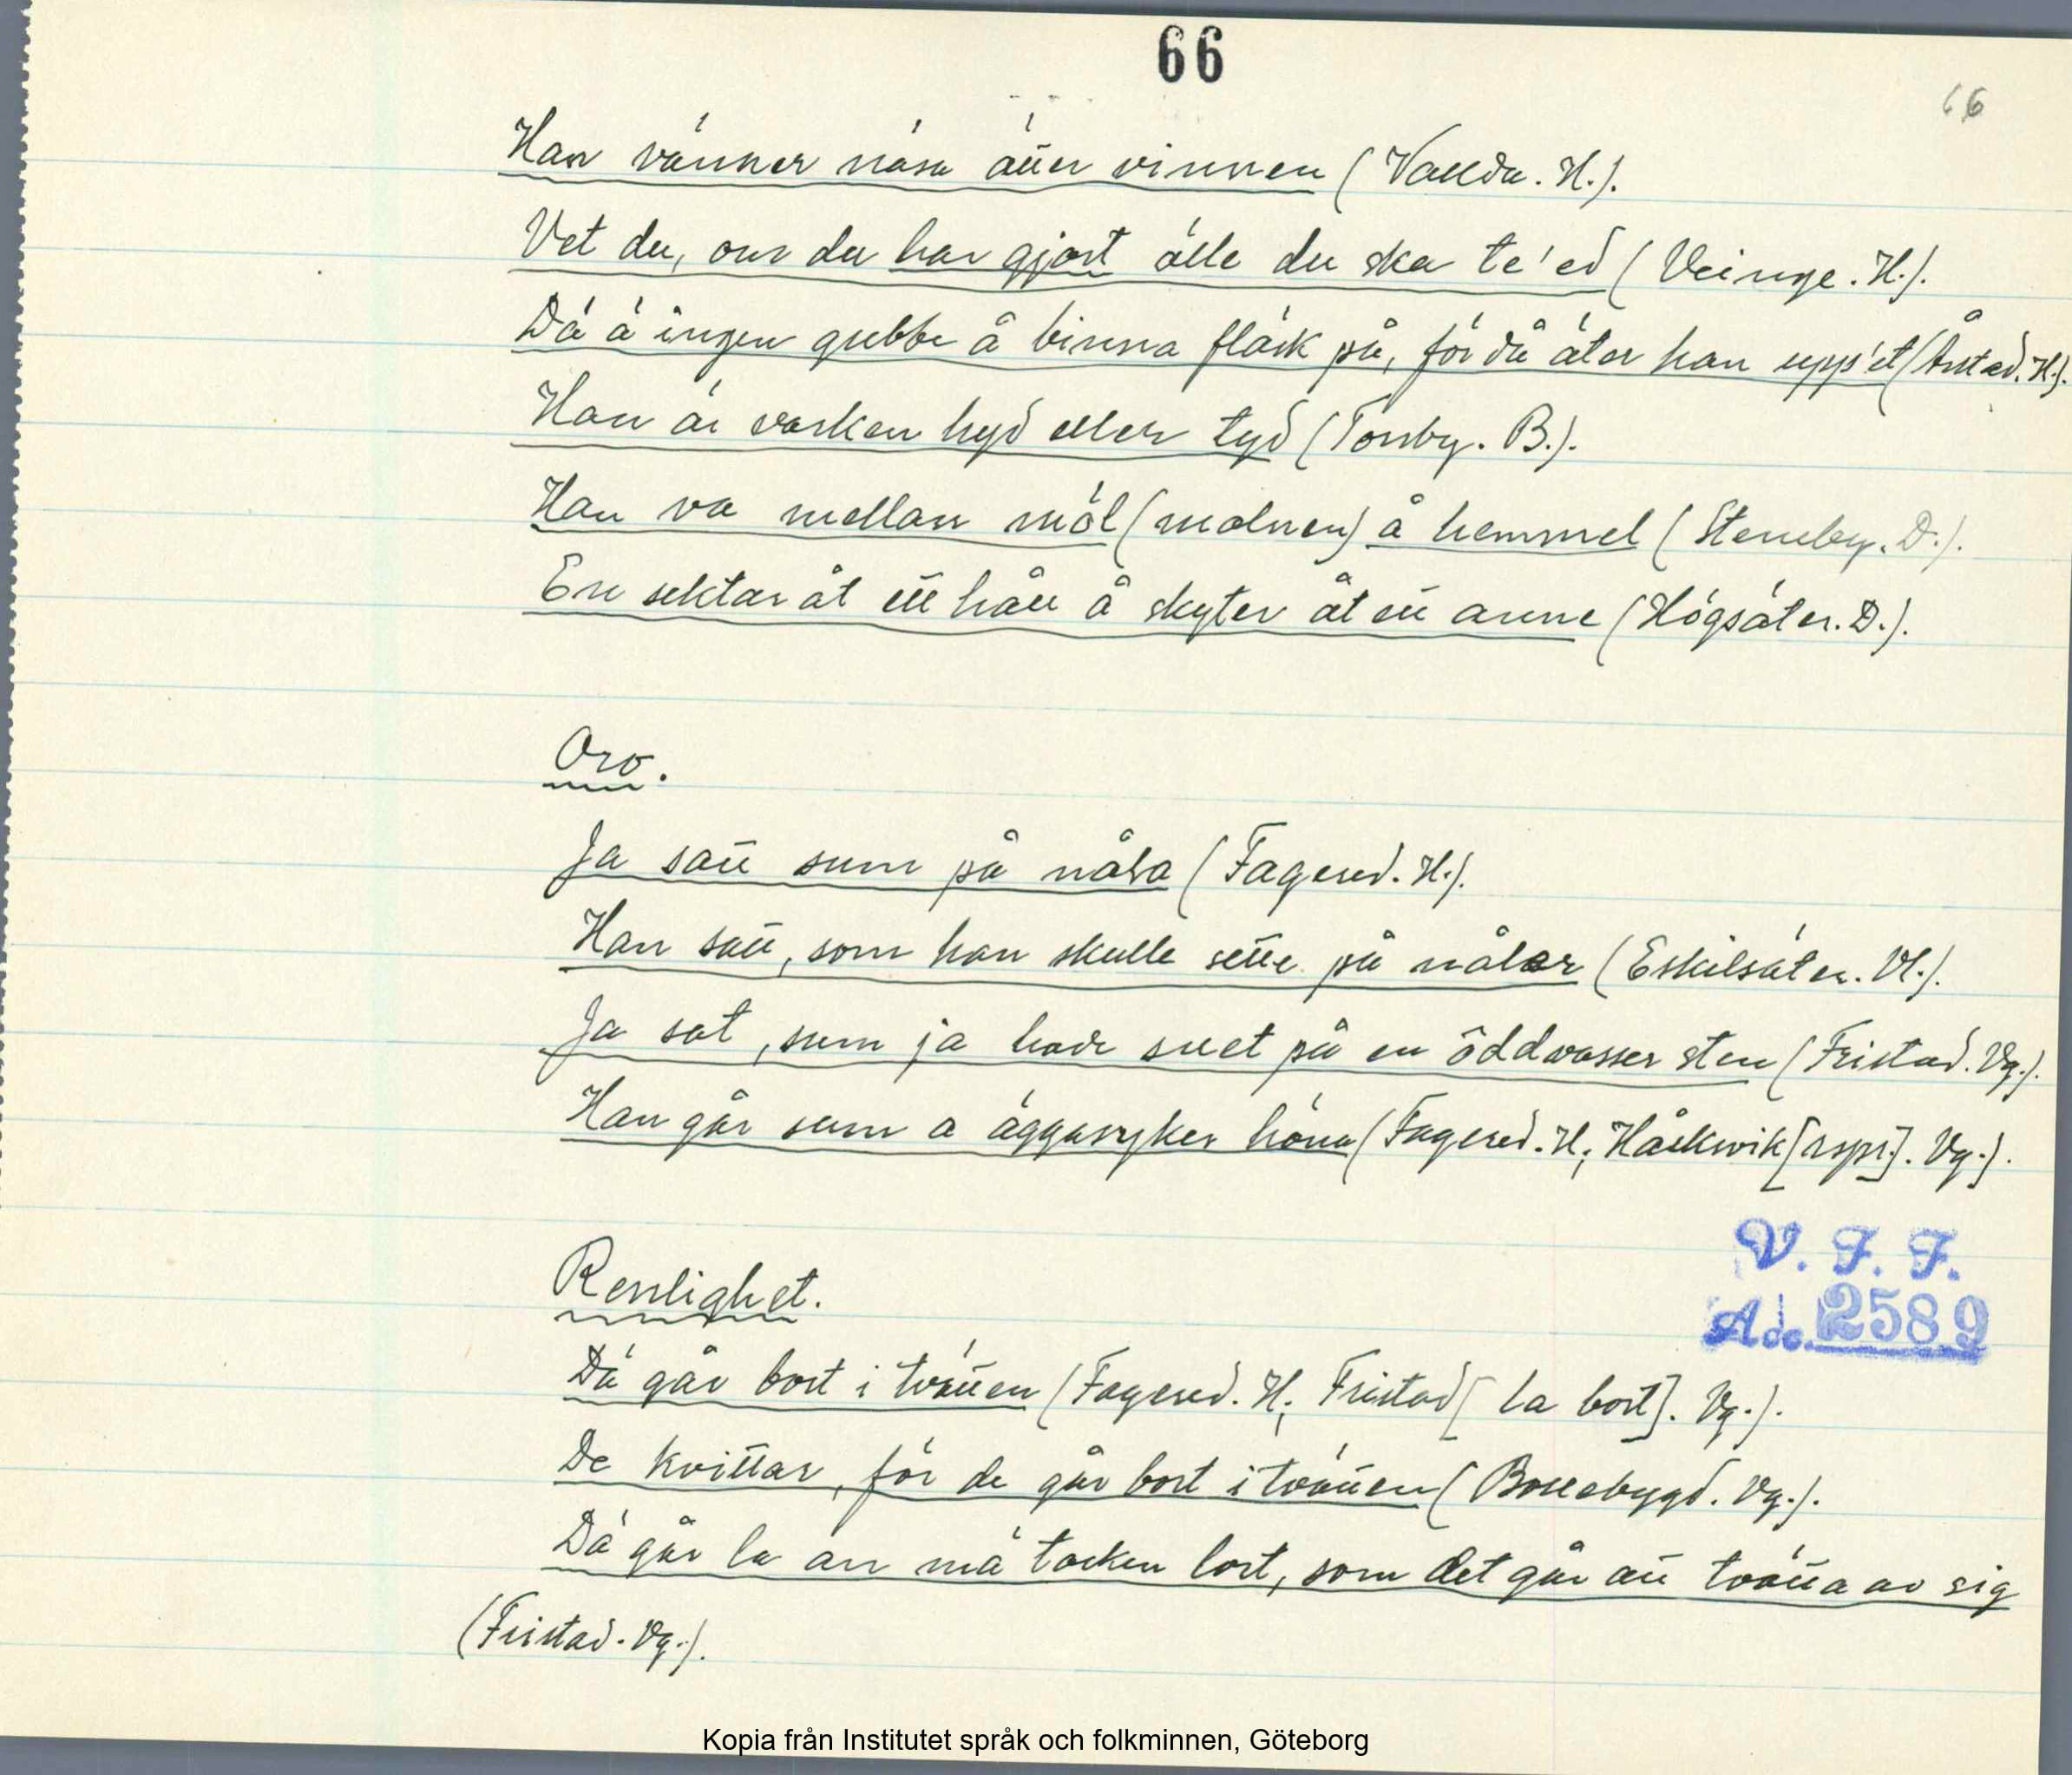 66
66
Han vänner näsa ätter vinnen (Vallda. H.).
Vet du, om du har gjort älle du ska te'ed (Veinge. H.).
Dä ä ingen gubbe å binna fläsk på, för då äter han upp'et (Årstad. H.).
Han är varken hyd eller tyd (Torsby. B.).
Han va mellan möl (molnen) å hemmel (Steneby. D.).
En sektar åt ett håll å skyter åt ett anne (Högsäter. D.).
Oro.
Ja satt sum på nåla (Fagered. H.).
Han satt, som han skulle sette på nålar (Eskilsäter. Vl.).
Ja sat, sum ja hade suet på en öddvasser sten (Fristad. Vg.).
Han går sum a äggasyker höna (Fagered. H; Hällkvik [rspr.]. Vg.).
V. F. F.
Acc. 2589
Renlighet.
Dä går bort i tvätten (Fagered. H; Fristad [la bort]. Vg.).
De kvittar, för de går bort i tvätten (Bollebygd. Vg.).
Dä går la an mä tocken lort, som det går att tvätta av sig
(Fristad. Vg.).
Kopia från Institutet språk och folkminnen, Göteborg